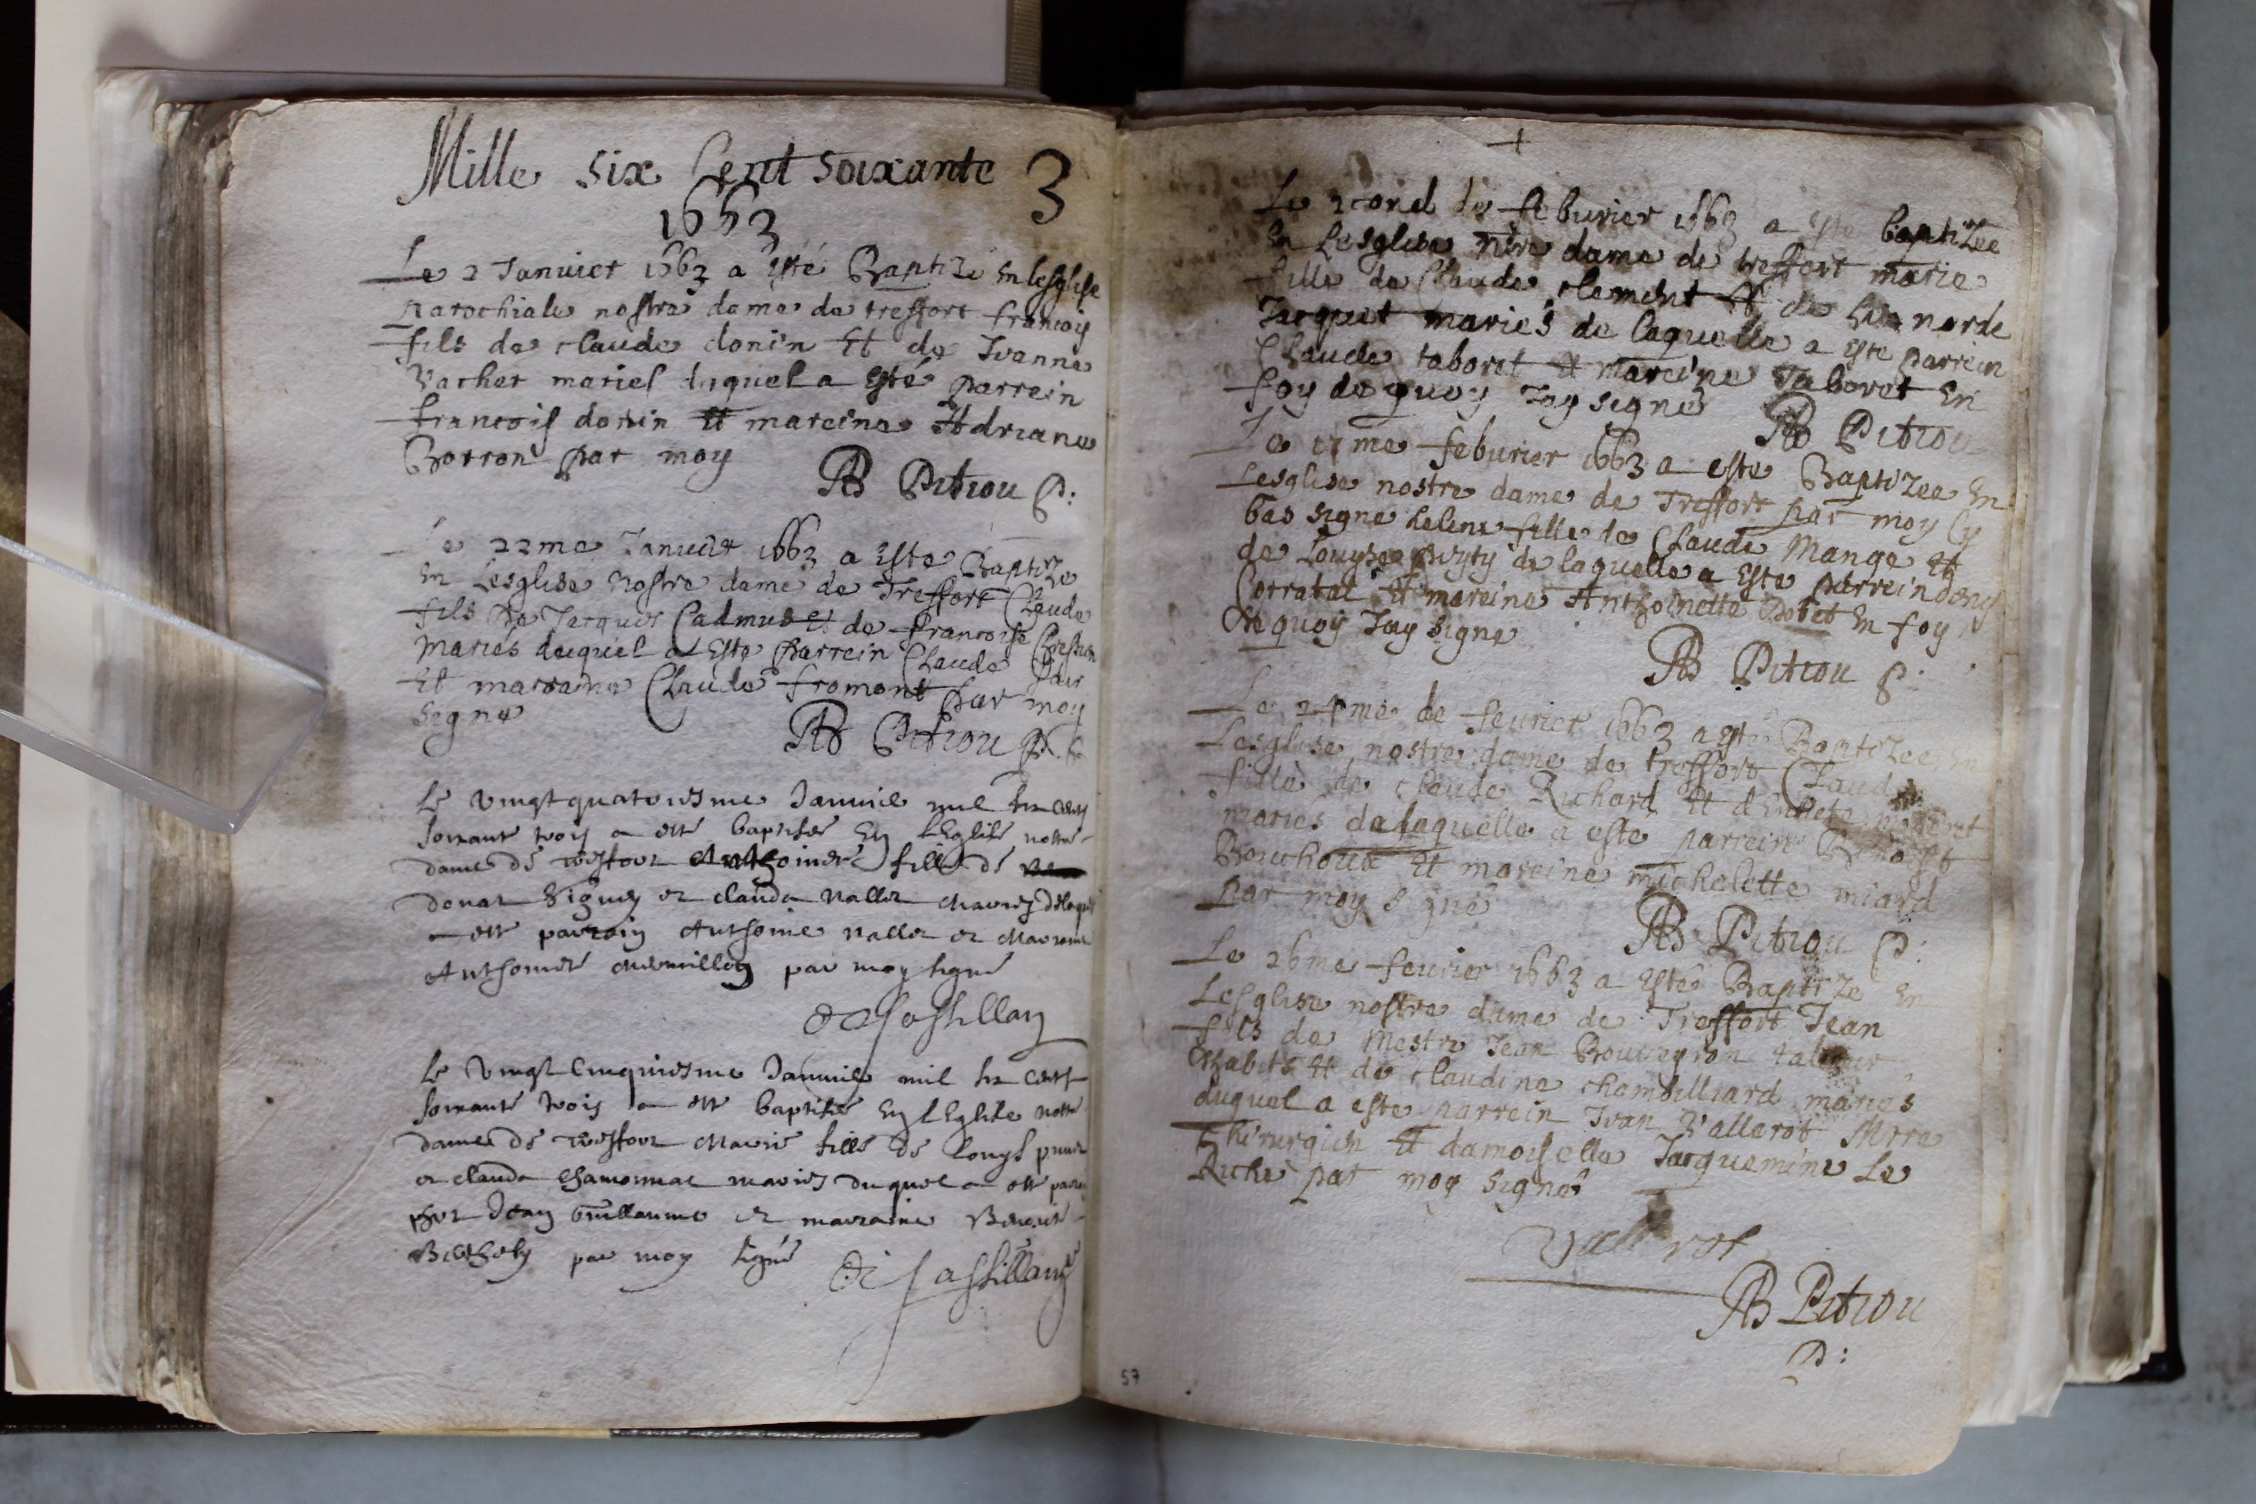 Mille six Cent soixante 3
1663
Le 2 Januier 1663 a esté Baptizé en lesglise
parochiale nostre dame de treffort francois
fils de claude donin Et de Ivanne
Vacher mariés duquel a Esté parrein
francois donin Et mareine Adriane
Borron par moy
AB Pitiou P:
Le 22me Januier 1663 a Este Baptize
en Lesglise Nostre dame de Treffort Claude
fils De Jacques Cadmus Et de francoise
mariés duquel a Este Parrein Claude
Et marraine Claude fromont par moy
signe
AB Pitiou P.
Le vingt quatriesme Januier mil six cent
soixante trois a esté baptisée En l'Eglise nostre
dame de treffort Anthoinete fille de
donat et claude Vallet Mariés de laquelle
a esté parrain Anthoine Vallet et Marraine
Anthoinete par moy signé
de Castillan
Le vingt Cinquiesme Januier mil six Cent
soixante trois a esté baptisée En l'Eglise nostre
dame de treffort Marie fille de Louys
et claude mariés duquel a esté
Jean Guillaume et marraine
par moy signé
de Castillan
+
Le 2cond de feburier 1663 a este baptizee
En Lesglise nre dame de treffort marie
fille de Claude clement Et de Leonarde
Jacquet mariés de laquelle a este parrein
Claude taboret Et mareine Taboret En
foy de quoy Jay signé
AB Pitiou
Le 17me feburier 1663 a este Baptizee En
Lesglise nostre dame de Treffort par moy cy
bas signe helene fille de Claude Mange Et
de Louyse de laquelle a Este parrein
Corratal Et mareine Anthoinette En foy
De quoy Jay signe
AB Pitiou P:
Le me de feurier 1663 a esté Baptizee en
Lesglise nostre dame de treffort Claude
fille de claude Richard Et
maries de laquelle a este parrein Benoist
Bouchoux Et mareine michelette miard
par moy signé
AB Pitiou P:
Le 26me feurier 1663 a Esté Baptize En
Lesglise nostre dame de Treffort Jean
fils de Mestre Jean
Et de claudine chambilliard mariés
duquel a este parrein Ivan Vallerot
Chirurgien Et damoiselle Jacquemine Le
Riche par moy signé
AB Pitiou
P:
57